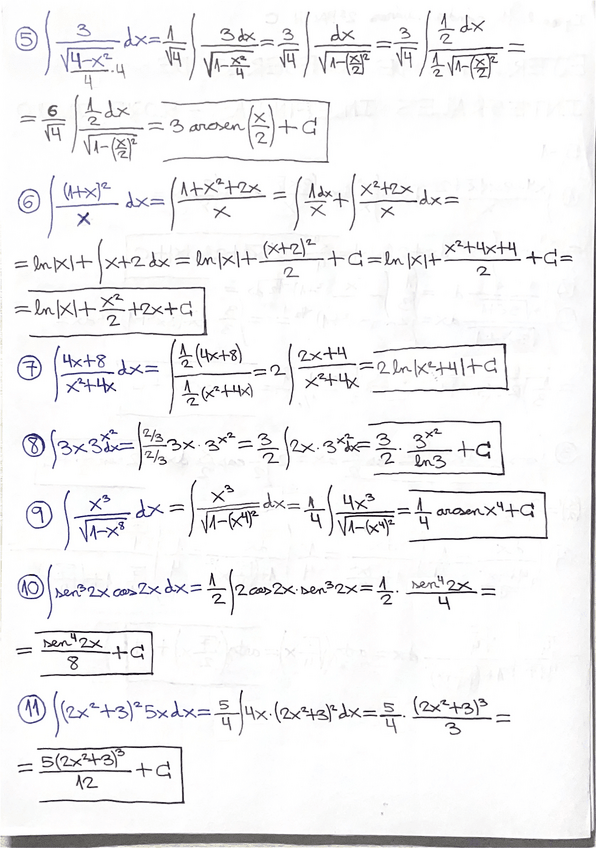 ⑤ ∫ 3/√((4-x²)/4 · 4) dx = 1/√4 ∫ 3dx/√(1-x²/4) = 3/√4 ∫ dx/√(1-(x/2)²) = 3/√4 ∫ (1/2 dx)/(1/2 √(1-(x/2)²)) =
= 6/√4 ∫ (1/2 dx)/√(1-(x/2)²) = 3 arcsen(x/2) + C
⑥ ∫ (1+x)²/x dx = ∫ (1+x²+2x)/x = ∫ 1dx/x + ∫ (x²+2x)/x dx =
= ln|x| + ∫ x+2 dx = ln|x| + (x+2)²/2 + C = ln|x| + (x²+4x+4)/2 + C =
= ln|x| + x²/2 + 2x + C
⑦ ∫ (4x+8)/(x²+4x) dx = ∫ (1/2 (4x+8))/(1/2 (x²+4x)) = 2 ∫ (2x+4)/(x²+4x) = 2 ln|x²+4| + C
⑧ ∫ 3x 3^x² dx = ∫ (2/3)/(2/3) 3x · 3^x² = 3/2 ∫ 2x · 3^x² dx = 3/2 · 3^x²/ln3 + C
⑨ ∫ x³/√(1-x⁸) dx = ∫ x³/√(1-(x⁴)²) dx = 1/4 ∫ 4x³/√(1-(x⁴)²) = 1/4 arcsen x⁴ + C
⑩ ∫ sen³2x cos2x dx = 1/2 ∫ 2cos2x · sen³2x = 1/2 · sen⁴2x/4 =
= sen⁴2x/8 + C
⑪ ∫ (2x²+3)² 5x dx = 5/4 ∫ 4x · (2x²+3)² dx = 5/4 · (2x²+3)³/3 =
= 5(2x²+3)³/12 + C